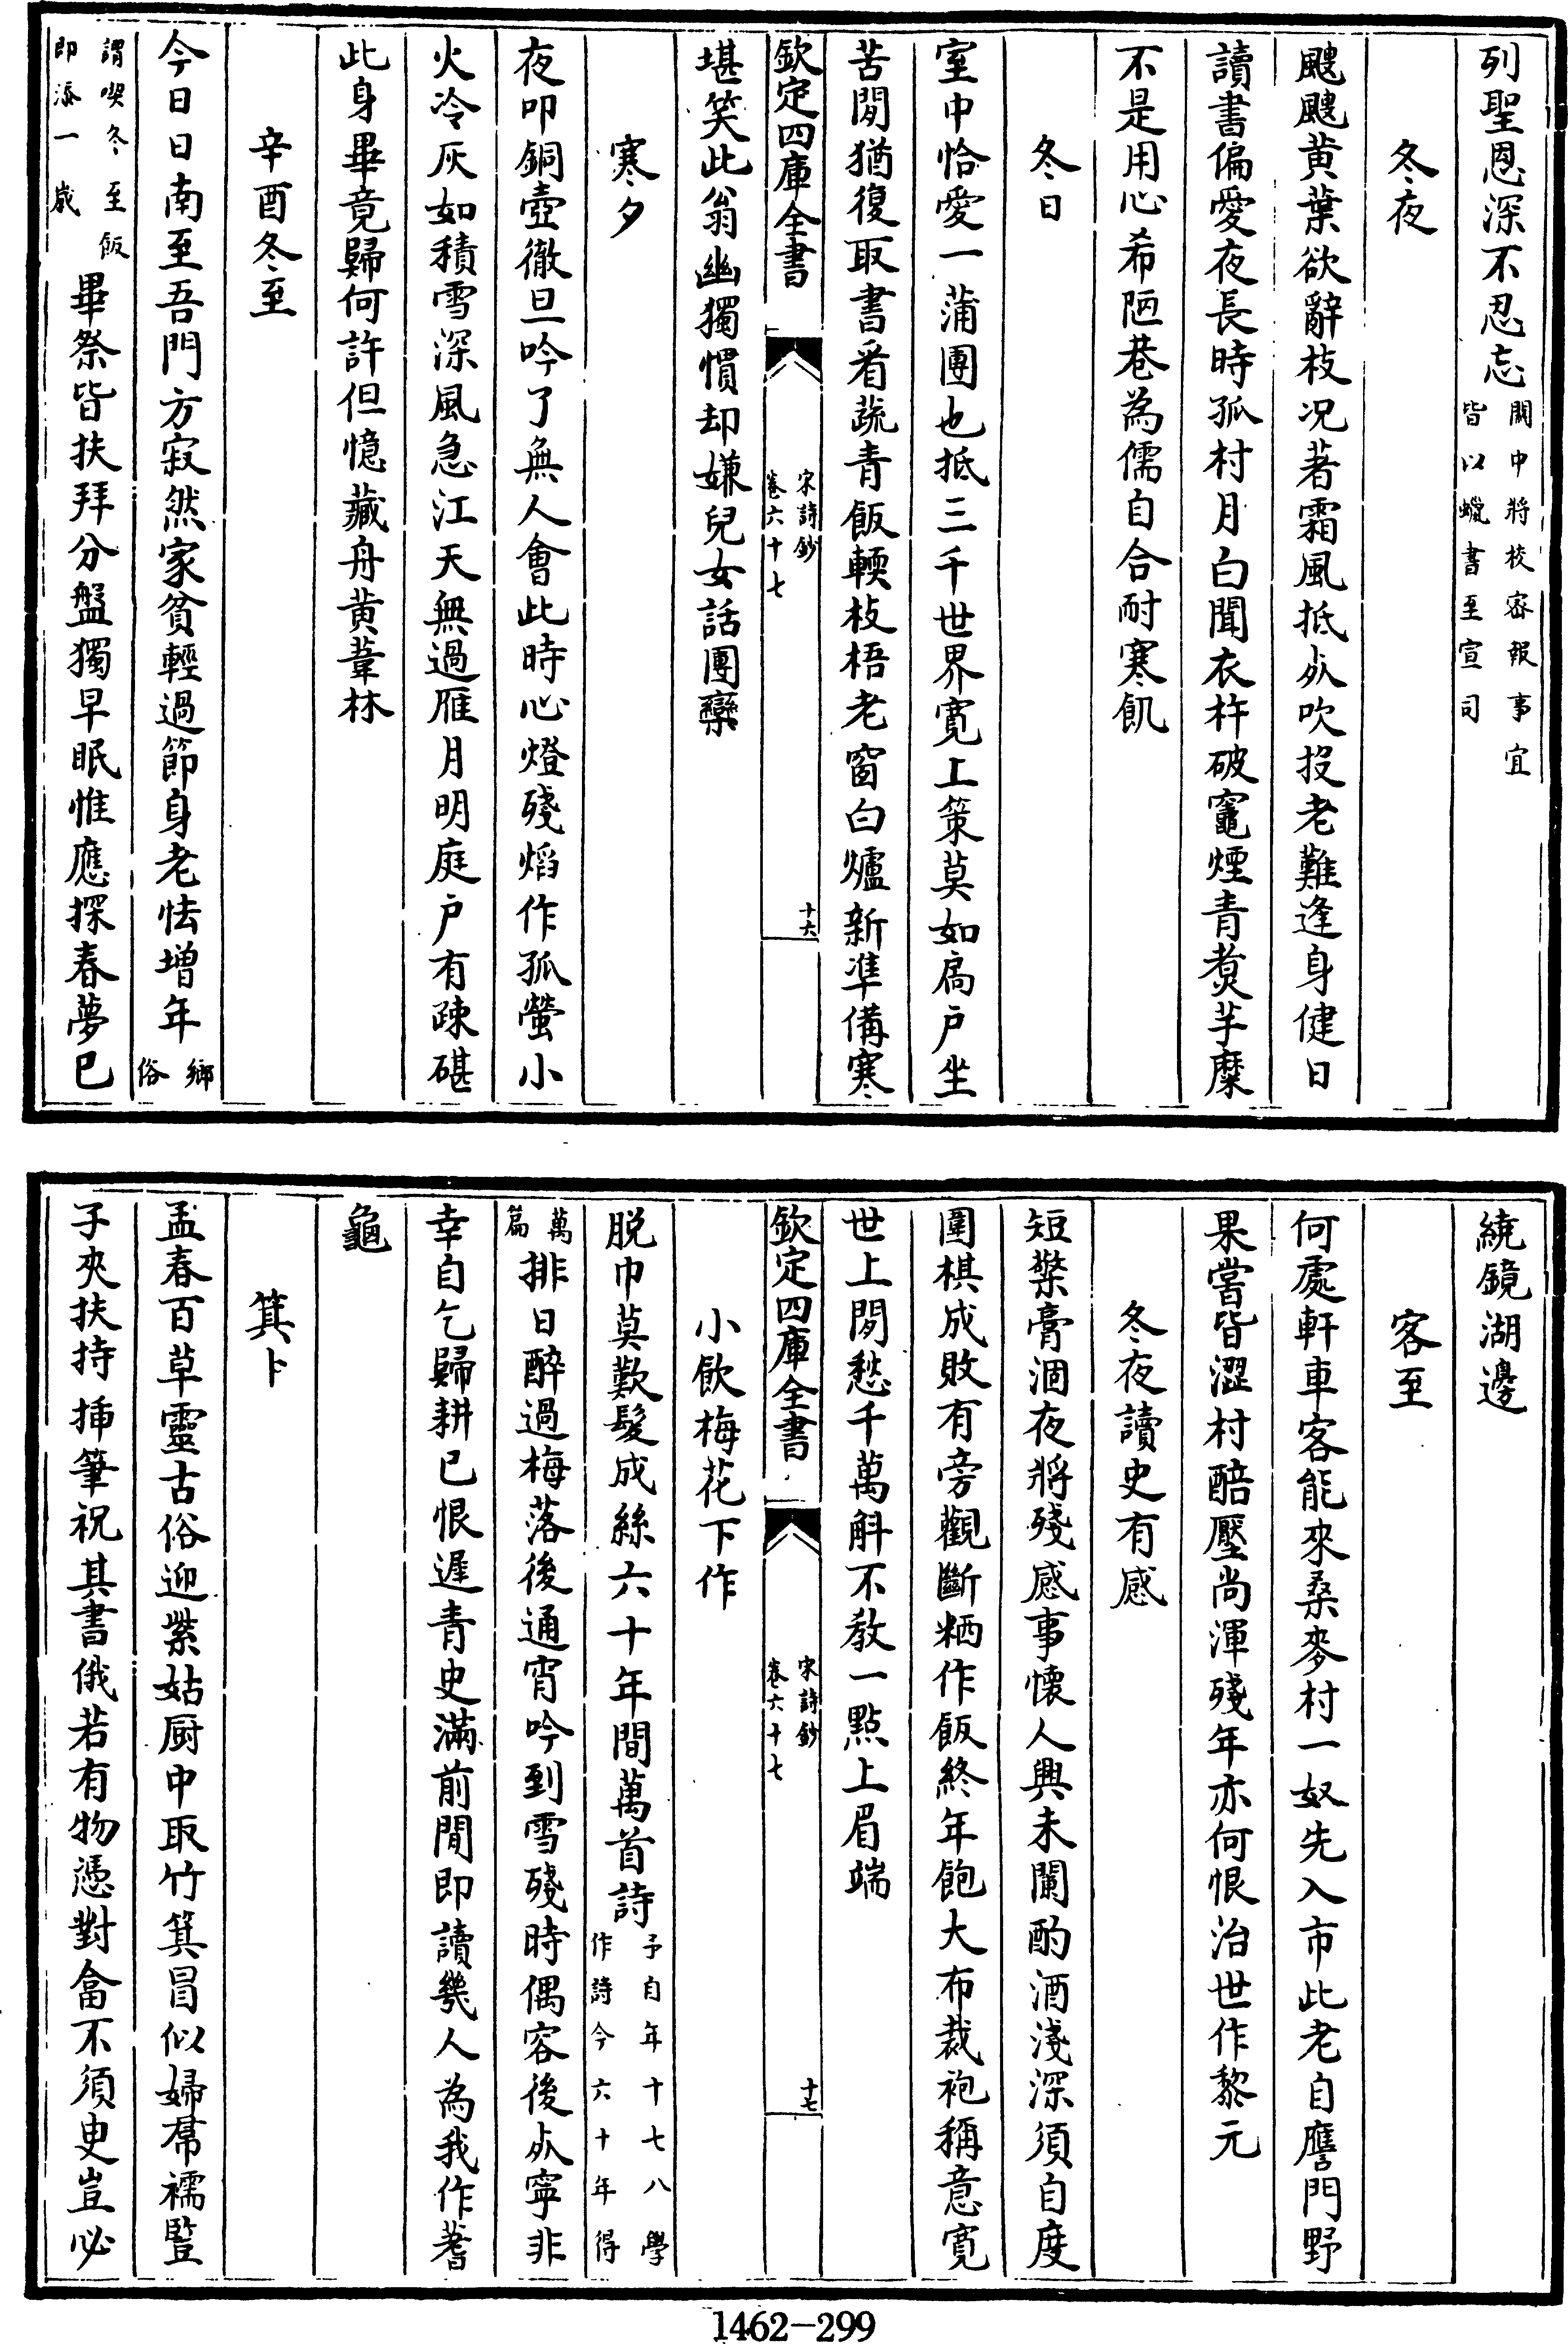 列聖恩深不忍忘關中將校密報事宜皆以蠟書至宣司
冬夜
颼颼黄葉欲辭枝况著霜風抵死吹投老難逢身健日
讀書偏愛夜長時孤村月白聞衣杵破竈煙青煑芋糜
不是用心希陋巷為儒自合耐寒飢
冬日
室中恰愛一蒲團也抵三千世界寛上策莫如扃户坐
苦閒猶復取書看蔬青飯輭枝梧老窗白爐新凖備寒
欽定四庫全書
宋詩鈔
卷六十七
十六
堪笑此翁幽獨慣却嫌兒女話團欒
寒夕
夜叩銅壺徹旦吟了無人會此時心燈殘焰作孤螢小
火冷灰如積雪深風急江天無過雁月明庭户有疎碪
此身畢竟歸何許但憶藏舟黄葦林
辛酉冬至
今日日南至吾門方寂然家貧輕過節身老怯增年鄉俗
謂喫冬至飯即添一歲畢祭皆扶拜分盤獨早眠惟應探春夢已
繞鏡湖邊
客至
何處軒車客能來桑麥村一奴先入市此老自譍門野
果嘗皆澀村醅壓尚渾殘年亦何恨治世作黎元
冬夜讀史有感
短檠膏涸夜將殘感事懷人興未闌酌酒淺深須自度
圍棋成敗有旁觀斷粞作飯終年飽大布裁袍稱意寛
世上閒愁千萬斛不教一點上眉端
欽定四庫全書
宋詩鈔
卷六十七
十七
小飲梅花下作
脱巾莫歎髪成絲六十年間萬首詩予自年十七八學作詩今六十年得
萬篇排日醉過梅落後通宵吟到雪殘時偶容後死寧非
幸自乞歸耕已恨遲青史滿前閒即讀幾人為我作蓍
龜
箕卜
孟春百草靈古俗迎紫姑厨中取竹箕冒似婦裠襦豎
子夾扶持揷筆祝其書俄若有物憑對畣不須臾豈必
1462-299